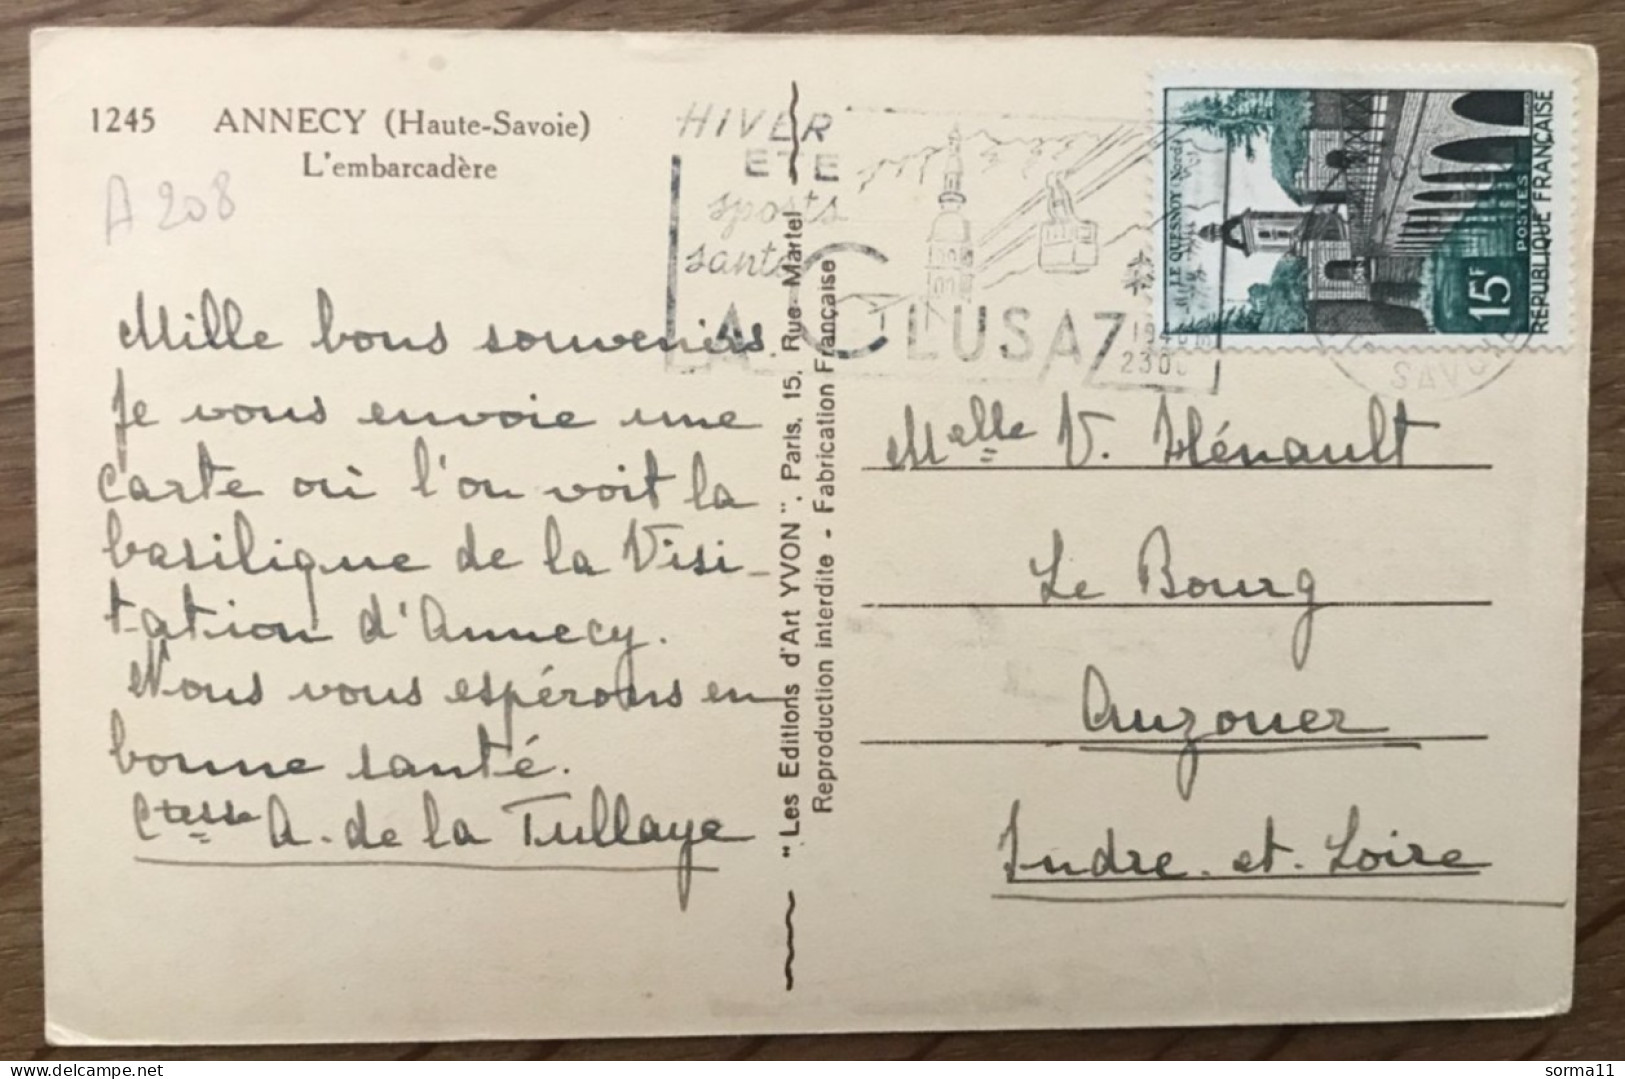 1245 ANNECY (Haute-Savoie)
L'embarcadère
A 208
Mille bons souvenirs.
Je vous envoie une
carte où l'on voit la
basilique de la Visi-
tation d'Annecy.
Nous vous espérons en
bonne santé.
Ctesse A. de la Tullaye
"Les Editions d'Art YVON". Paris, 15, Rue Martel
Reproduction interdite - Fabrication Française
HIVER
ETE
sports
santé
LA CLUSAZ
SAVOIE
LE QUESNOY (Nord)
15F
POSTES
REPUBLIQUE FRANÇAISE
Melle V. Hénault
Le Bourg
Auzouer
Indre-et-Loire
sorma11